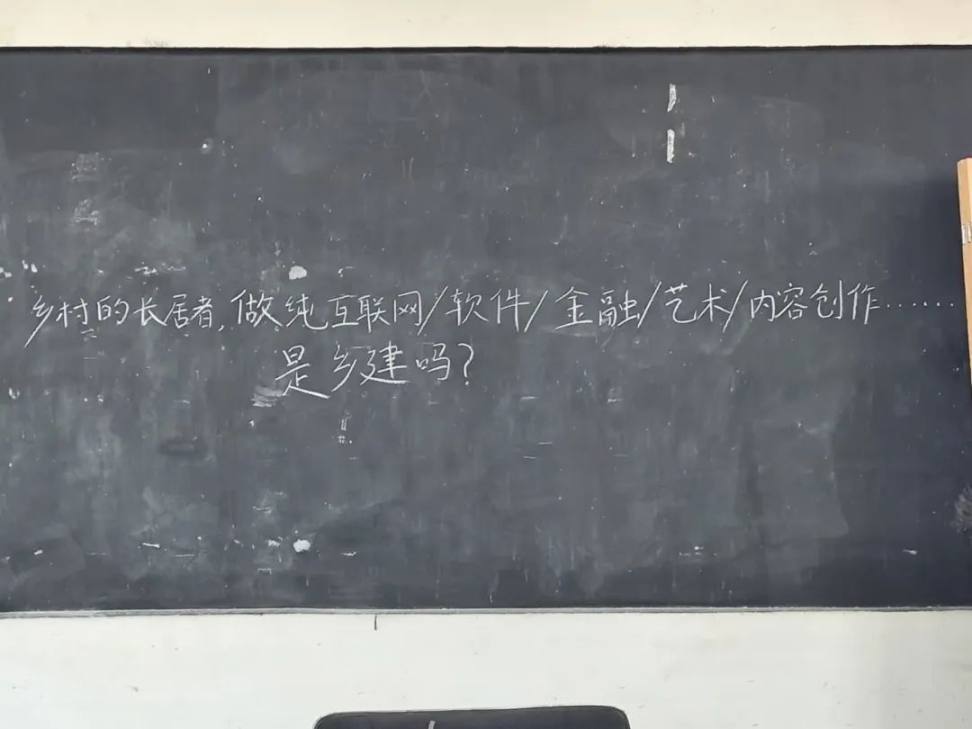 乡村的长居者,做纯互联网/软件/金融/艺术/内容创作……
是乡建吗?